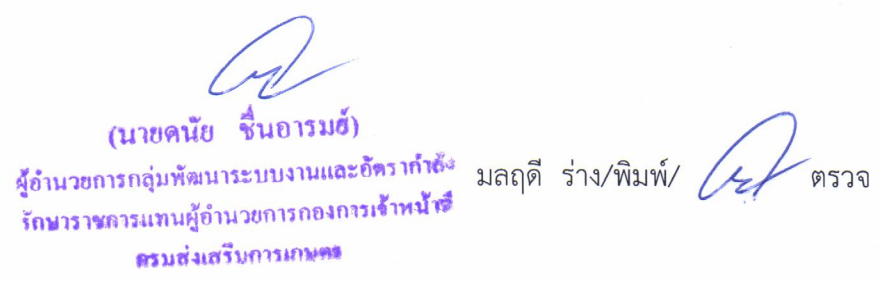 (นายดนัย ชื่นอารมย์)
ผู้อำนวยการกลุ่มพัฒนาระบบงานและอัตรากำลัง
รักษาราชการแทนผู้อำนวยการกองการเจ้าหน้าที่
กรมส่งเสริมการเกษตร
มลฤดี ร่าง/พิมพ์/ ตรวจ